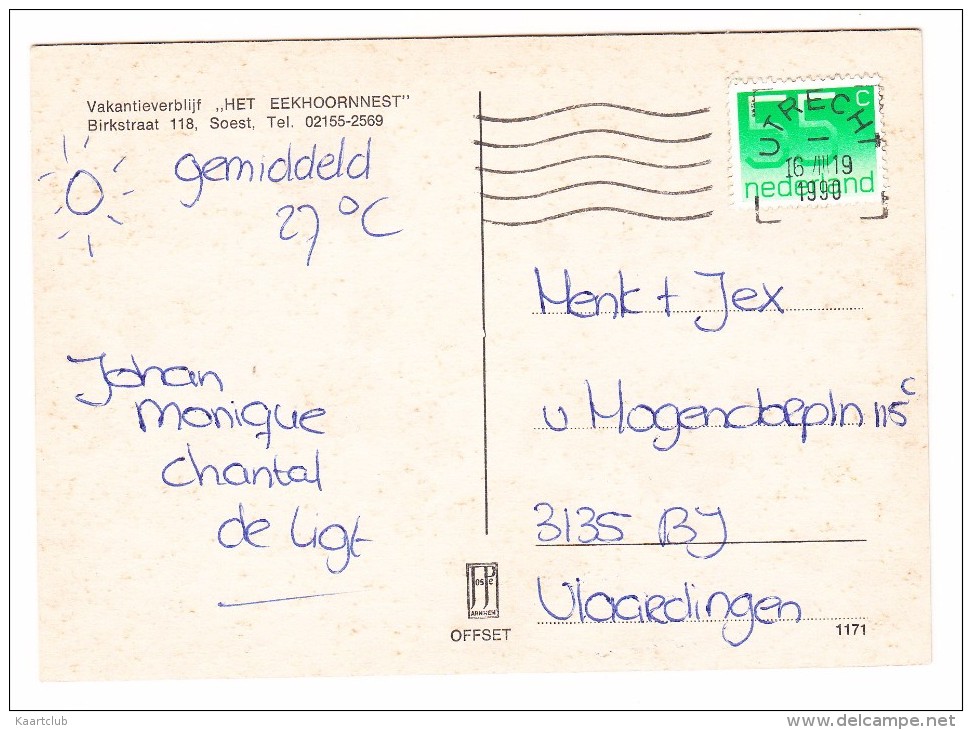 Vakantieverblijf „HET EEKHOORNNEST"
Birkstraat 118, Soest, Tel. 02155-2569
gemiddeld
27 °C
Johan
Monique
Chantal
de Ligt
55 c
nederland
UTRECHT
16 /III 19
1990
Henk + Jex
v Hogendorpln 115c
3135 BJ
Vlaardingen
JosPé
ARNHEM
OFFSET
1171
Kaartclub
www.delcampe.net